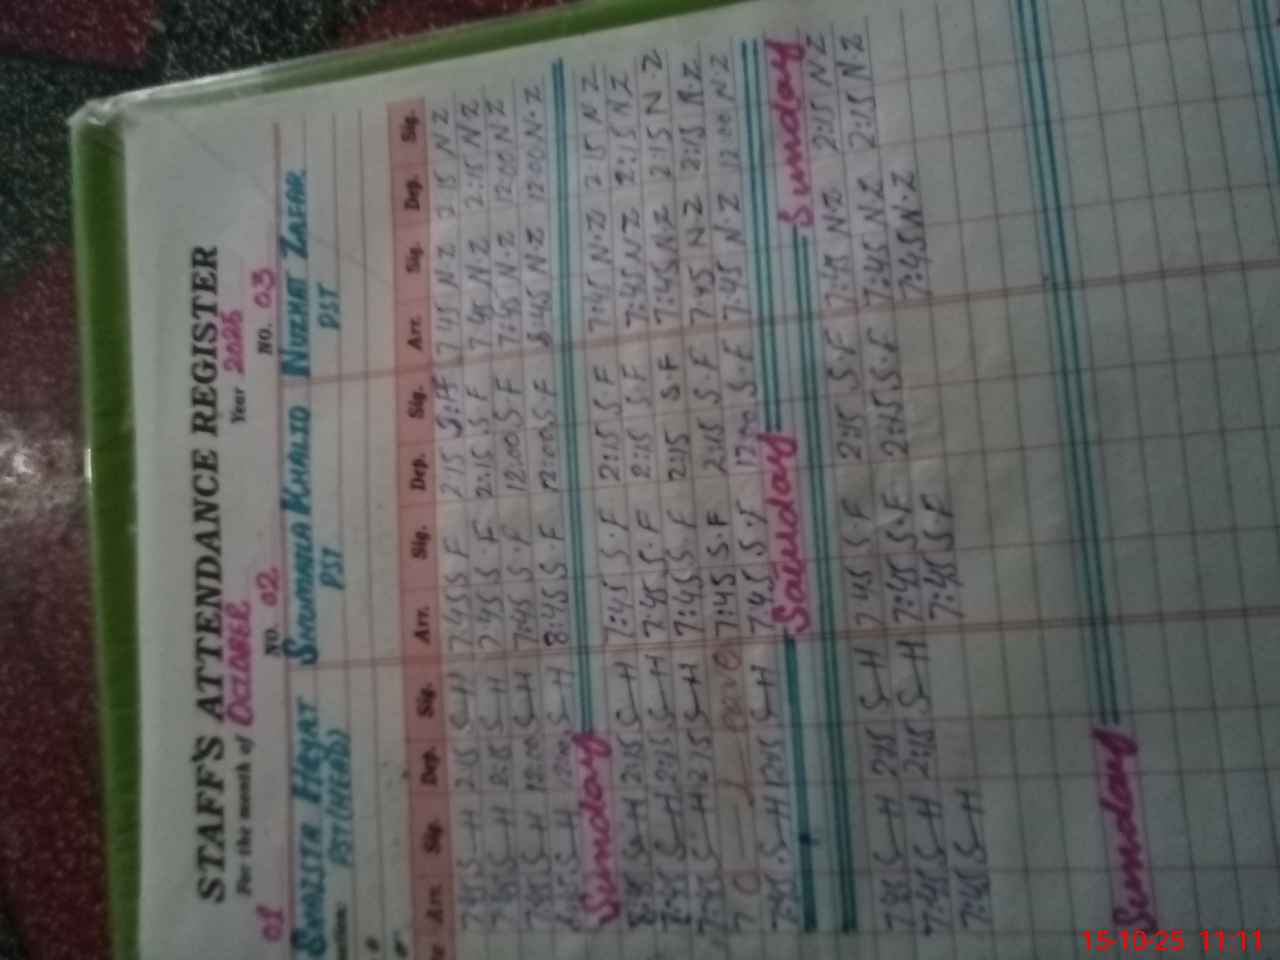 STAFF'S ATTENDANCE REGISTER
For the month of OCTOBER Year 2025
01 NO. 02 NO. 03
SHAZITA HAYAT SHUMAILA KHALID NUZHAT ZAFAR
PST(HEAD) PST PST
Arr. Sig. Dep. Sig. Arr. Sig. Dep. Sig. Arr. Sig. Dep. Sig.
7:45 S-H 2:15 S-H 7:45 S F 2:15 7:45 N-Z 2:15 N Z
7:45 S-H 2:15 S-H 7:45 S.F 2:15 S F 7:45 N.Z 2:15 N Z
7:45 S-H 12:00 S-H 7:45 S.F 12:00 S F 7:45 N.Z 12:00 N Z
S-H 12:00 S-H 8:45 S.F 12:00 S.F 8:45 N.Z 12:00 N.Z
Sunday
S-H 2:15 S-H 7:45 S.F 2:15 S F 7:45 N.Z 2:15 N Z
7:45 S-H 2:15 S-H 7:45 S.F 2:15 S.F 7:45 N Z 2:15 N Z
7:45 S-H 2:15 S-H 7:45 S.F 2:15 S.F 7:45 N.Z 2:15 N.Z
7:45 S.F 2:15 S.F 7:45 N-Z 2:15 N.Z
7:45 S-H 12:15 S-H 7:45 S.F 12:00 S.F 7:45 N.Z 12:00 N Z
Sunday
7:45 S-H 2:15 S-H 7:45 S.F 2:15 S.F 7:45 N.Z 2:15 N.Z
7:45 S-H 2:15 S-H 7:45 S.F 2:15 S.F 7:45 N.Z 2:15 N Z
7:45 S-H 7:45 S.F 7:45 N.Z
Sunday
15-10-25 11:11